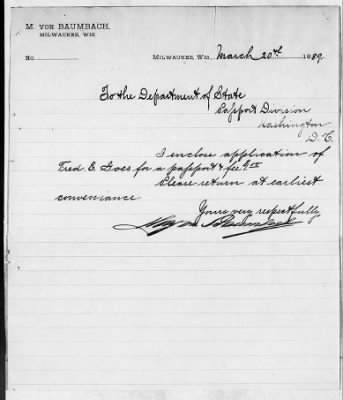 M. VON BAUMBACH,
MILWAUKEE, WIS.
No. MILWAUKEE, WIS. March 20th 1889.
To the Department of State
Passport Division
Washington
D.C.
I enclose application of
Fred E. Goes for a passport & fee
Please return at earliest
convenience
Yours very respectfully